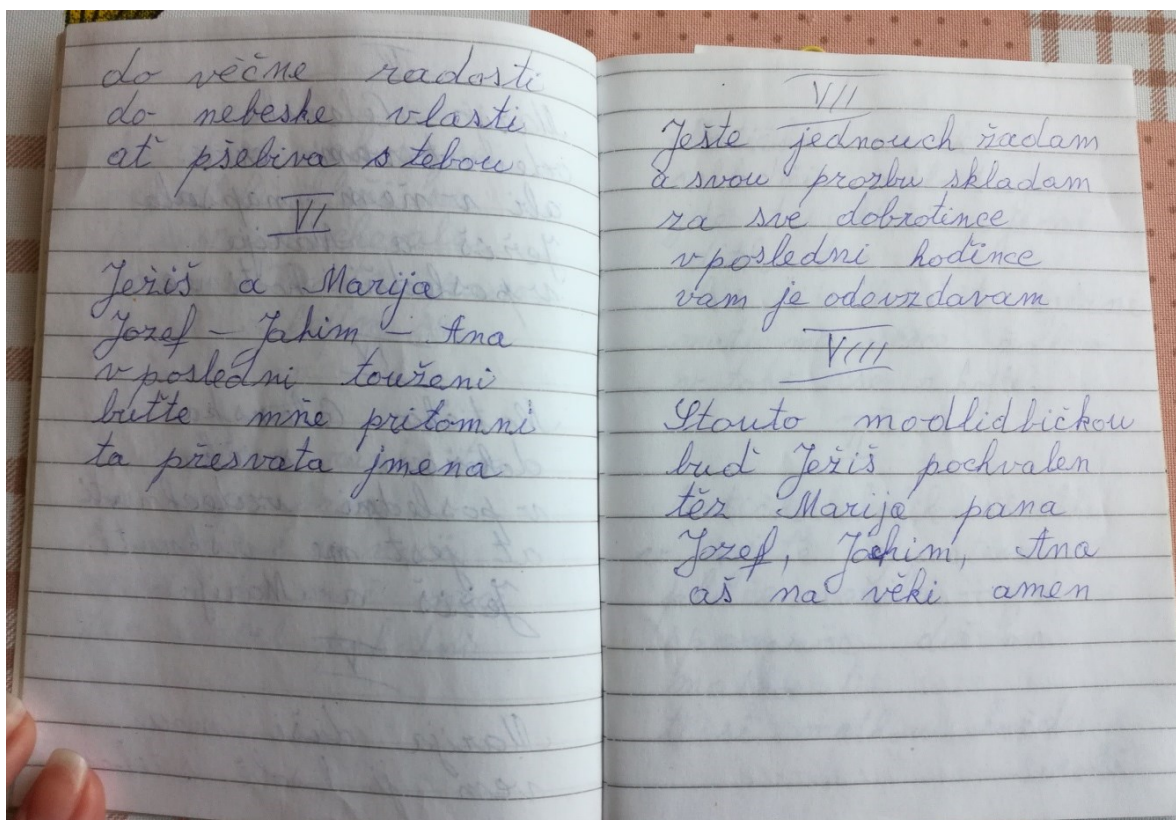 do věčne radosti
do nebeske vlasti
ať pšebiva s tebou
VI
Ježiš a Marija
Jozef - Jahim - Ana
v posledni touženi
buťte mňe pritomni
ta přesvata jmena
VII
Ješte jednouch žadam
a svou prozbu skladam
za sve dobrotince
v posledni hodince
vam je odevzdavam
VIII
Stouto modlidbičkou
buď Ježiš pochvalen
těz Marija pana
Jozef, Jachim, Ana
aš na věki amen